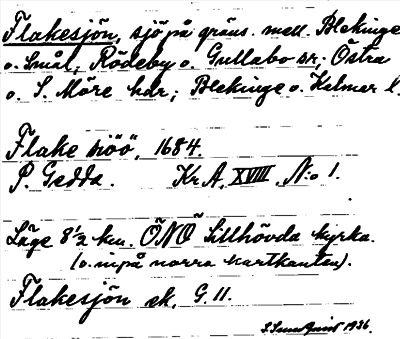 Flakesjön, sjö på gräns. mell. Blekinge
o. Smål.; Rödeby o. Gullabo sr; Östra
o. S. Möre hdr; Blekinge o. Kalmar l.
Flake siöö, 1684.
P. Gedda. Kr.A. XVIII. N:o 1.
Läge 8½ km. ÖNÖ Sillhövda kyrka.
(o. inpå norra kartkanten).
Flakesjön ek. G. 11.
S. Sundqvist 1936.